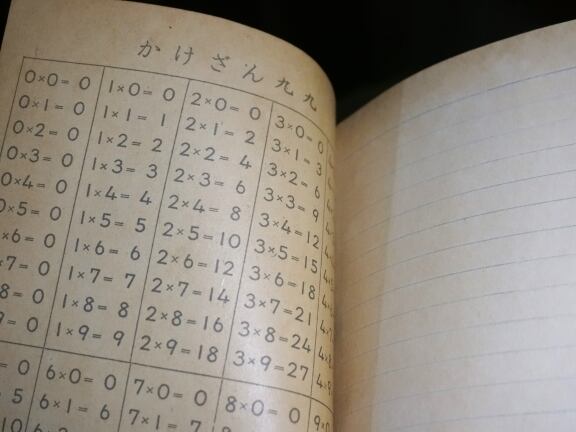 かけざん九九
0×0= 0 1×0= 0 2×0= 0 3×0= 0
0×1= 0 1×1= 1 2×1= 2 3×1= 3
0×2= 0 1×2= 2 2×2= 4 3×2= 6
0×3= 0 1×3= 3 2×3= 6 3×3= 9
0×4= 0 1×4= 4 2×4= 8 3×4=12
0×5= 0 1×5= 5 2×5=10 3×5=15
×6= 0 1×6= 6 2×6=12 3×6=18
×7= 0 1×7= 7 2×7=14 3×7=21
8= 0 1×8= 8 2×8=16 3×8=24
9= 0 1×9= 9 2×9=18 3×9=27
= 0 6×0= 0 7×0= 0 8×0= 0
5 6×1= 6 7×1= 7
10